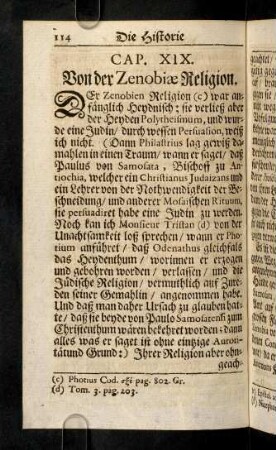 114 Die Historie
CAP. XIX.
Von der Zenobiæ Religion.
DEr Zenobien Religion (c) war an-
fänglich Heydnisch: sie verließ aber
der Heyden Polytheismum, und wur-
de eine Jüdin/ durch wessen Persuasion, weiß
ich nicht. (Dann Philastrius lag gewiß da-
mahlen in einen Traum/ wann er saget/ daß
Paulus von Samosata, Bischoff zu An-
tiochia, welcher ein Christianus Judaizans und
ein Lehrer von der Nothwendigkeit der Be-
schneidung/ und anderer Mosaischen Rituum,
sie persuadiret habe eine Jüdin zu werden.
Noch kan ich Monsieur Tristan (d) von der
Unachtsamkeit loß sprechen/ wann er Pho-
tium anführet/ daß Odenathus gleichfals
das Heydenthum/ worinnen er erzogen
und gebohren worden/ verlassen/ und die
Jüdische Religion/ vermuthlich auf Zure-
den seiner Gemahlin/ angenommen habe.
Und daß man daher Ursach zu glauben hät-
te/ daß sie beyde von Paulo Samosatensi zum
Christenthum wären bekehret worden: dann
alles was er saget ist ohne eintzige Autori-
tät und Grund:) Ihrer Religion aber ohn-
geach-
(c) Photius Cod. pag. 802. Gr.
(d) Tom. 3. pag. 203.